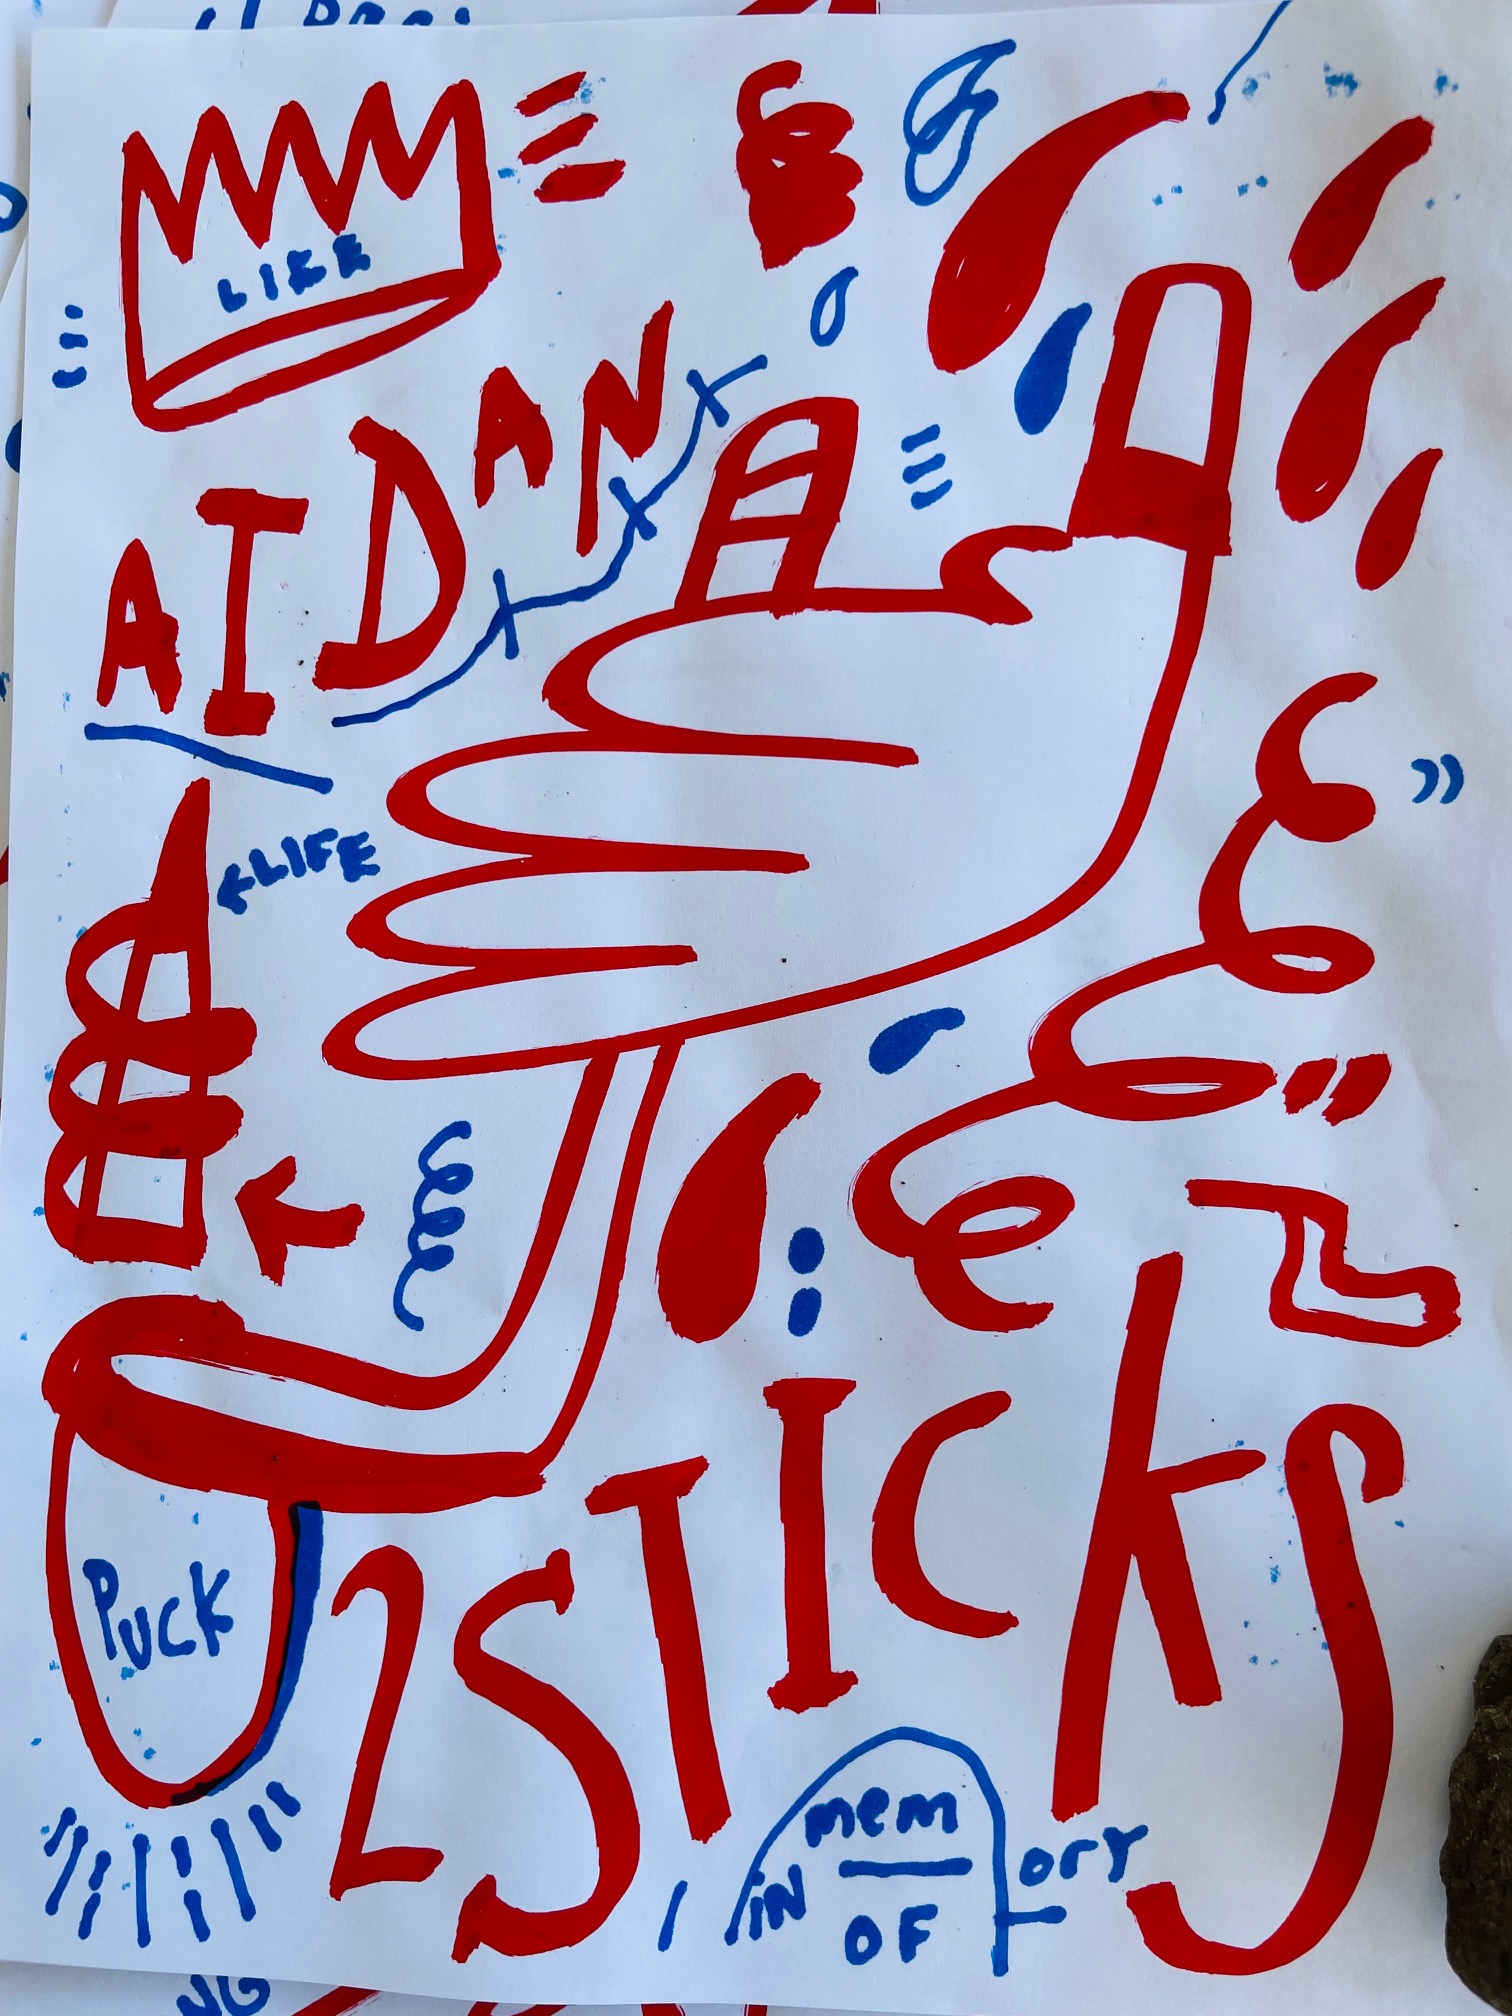 LIKE
AIDAN
←LIFE
PUCK
2STICKS
mem ory
iN OF
NG